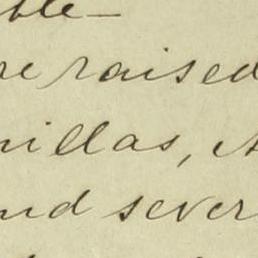 ble —
re raised
nillas,
nd sever